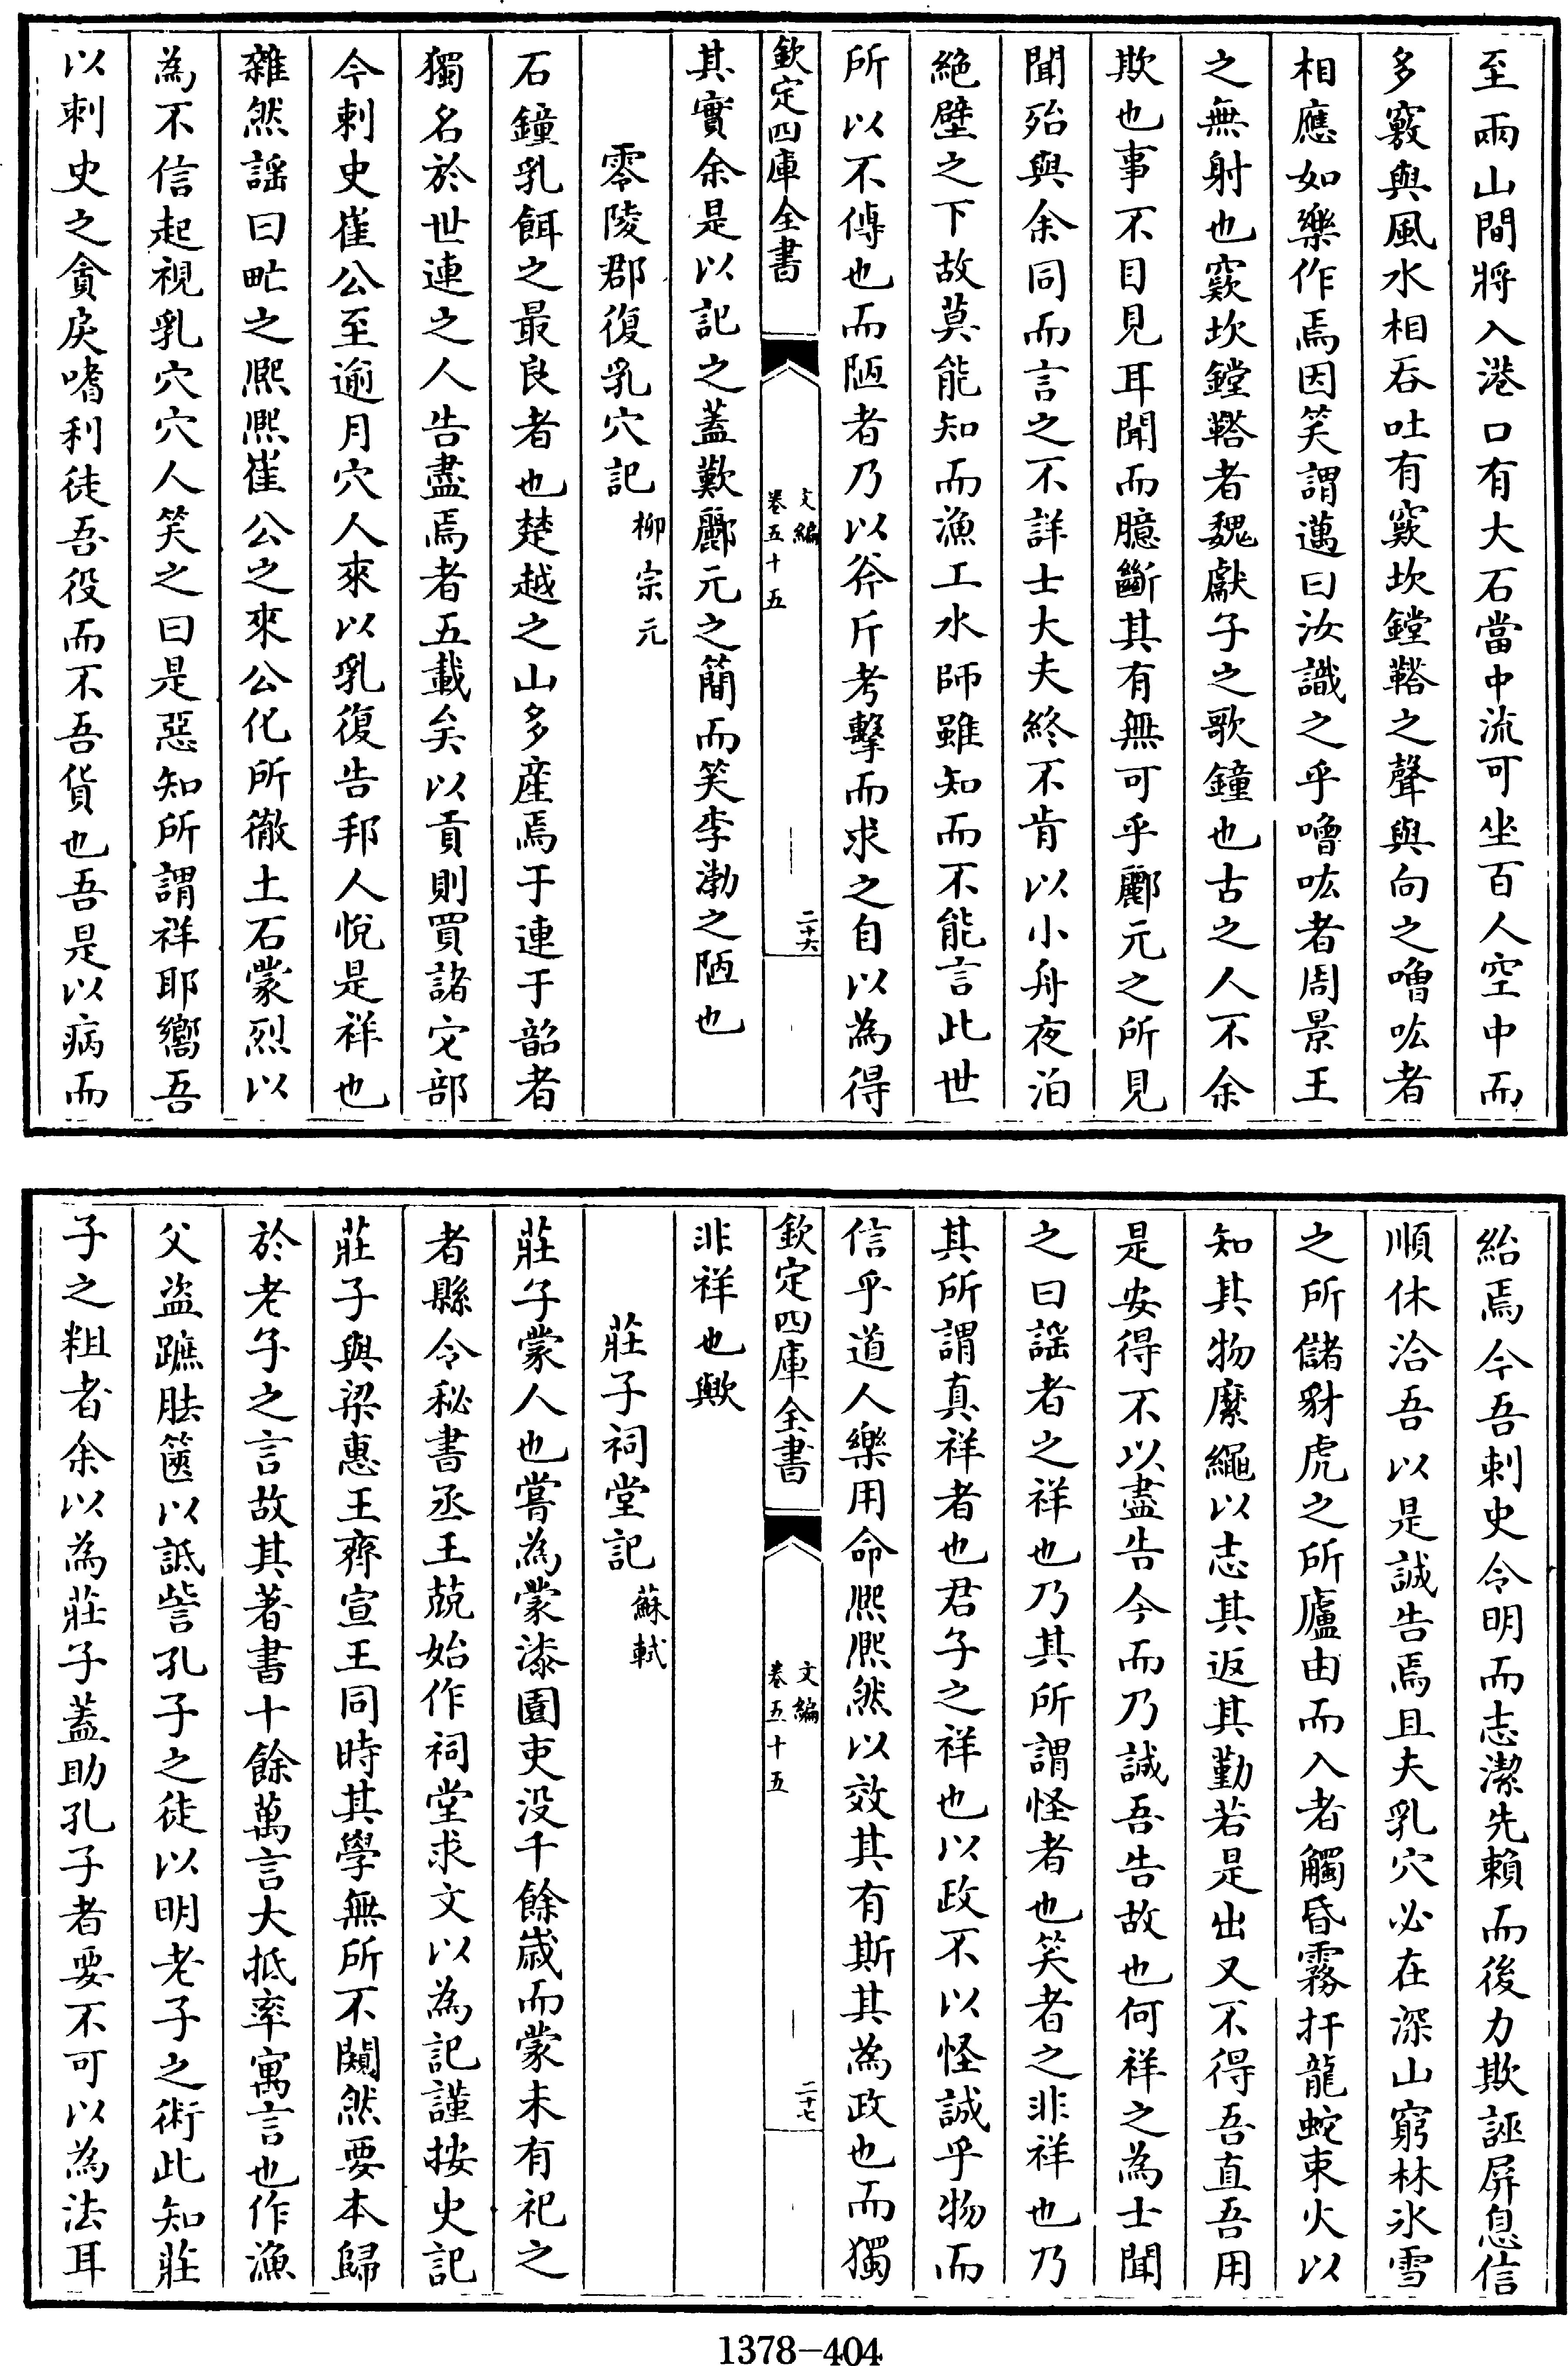 至兩山間將入港口有大石當中流可坐百人空中而
多竅與風水相吞吐有窾坎鏜鞳之聲與向之噌吰者
相應如樂作焉因笑謂邁曰汝識之乎噌吰者周景王
之無射也窾坎鏜鞳者魏獻子之歌鐘也古之人不余
欺也事不目見耳聞而臆斷其有無可乎酈元之所見
聞殆與余同而言之不詳士大夫終不肯以小舟夜泊
絶壁之下故莫能知而漁工水師雖知而不能言此世
所以不傳也而陋者乃以斧斤考擊而求之自以為得
欽定四庫全書
文編
卷五十五
二十六
其實余是以記之蓋歎酈元之簡而笑李渤之陋也
零陵郡復乳穴記 柳宗元
石鐘乳餌之最良者也楚越之山多産焉于連于韶者
獨名於世連之人告盡焉者五載矣以貢則買諸它部
今刺史崔公至逾月穴人來以乳復告邦人悅是祥也
雜然謡曰甿之熙熙崔公之來公化所徹土石蒙烈以
為不信起視乳穴穴人笑之曰是惡知所謂祥耶嚮吾
以刺史之貪戾嗜利徒吾役而不吾貨也吾是以病而
紿焉今吾刺史令明而志潔先賴而後力欺誣屏息信
順休洽吾以是誠告焉且夫乳穴必在深山窮林氷雪
之所儲豺虎之所廬由而入者觸昏霧扞龍蛇束火以
知其物縻繩以志其返其勤若是出又不得吾直吾用
是安得不以盡告今而乃誠吾告故也何祥之為士聞
之曰謡者之祥也乃其所謂怪者也笑者之非祥也乃
其所謂真祥者也君子之祥也以政不以怪誠乎物而
信乎道人樂用命熙熙然以效其有斯其為政也而獨
欽定四庫全書
文編
卷五十五
二十七
非祥也歟
莊子祠堂記 蘇軾
莊子蒙人也嘗為蒙漆園吏没千餘歲而蒙未有祀之
者縣令秘書丞王兢始作祠堂求文以為記謹按史記
莊子與梁惠王齊宣王同時其學無所不闚然要本歸
於老子之言故其著書十餘萬言大抵率寓言也作漁
父盜蹠胠篋以詆訾孔子之徒以明老子之術此知莊
子之粗者余以為莊子蓋助孔子者要不可以為法耳
1378-404